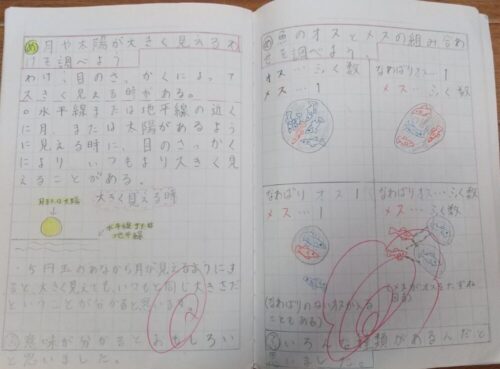 め 月や太陽が大きく見えるわ
けを調べよう
わけ、目のさっかくによって
大きく見える時がある。
○水平線または地平線の近く
に月、または太陽があるよう
に見える時に、目のさっかく
により、いつもより大きく見
えることがある。
大きく見える時
月または太陽
水平線または
地平線
・5円玉のあなから月が見えるようにす
ると、大きく見えても、いつもと同じ大きさだ
ということが分かると思います。
意味が分かるとおもしろい
と思いました。
め 魚のオスとメスの組み合わ
せを調べよう。
オス…ふく数
メス…1
なわばりオス…1
メス…ふく数
なわばりオス1
メス…1
なわばりオス…ふく数
メス…ふく数
(なわばりのないオスが入る
こともある)
(メスがオスをたずね
回る)
いろんな種類があるんだと
思いました。